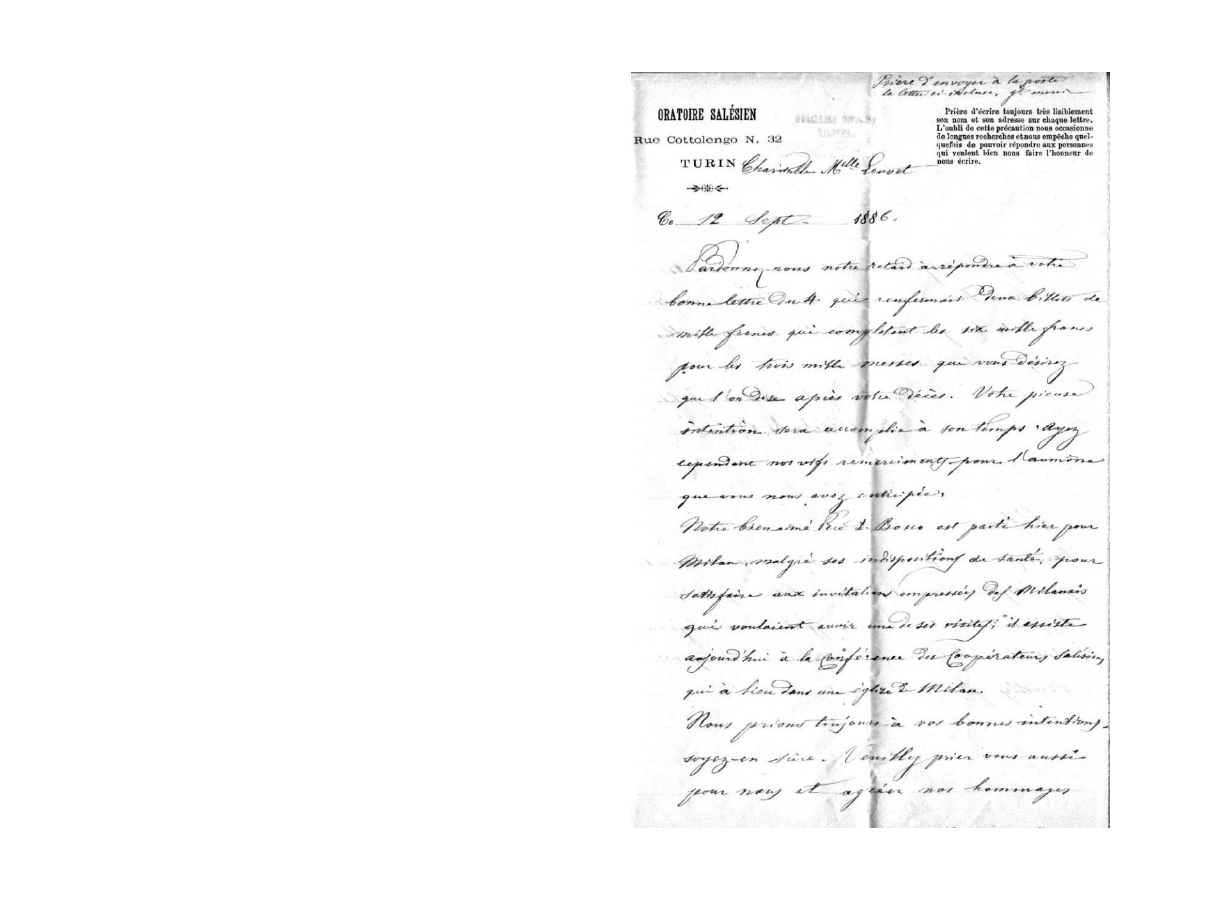 Prière d'envoyer à la poste
la lettre ci incluse, merci
ORATOIRE SALÉSIEN
Rue Cottolengo N. 32
TURIN
Prière d'écrire toujours très lisiblement
son nom et son adresse sur chaque lettre.
L'oubli de cette précaution nous occasionne
de longues recherches et nous empêche quel-
quefois de pouvoir répondre aux personnes
qui veulent bien nous faire l'honneur de
nous écrire.
Charitable Mlle Louvet
Ce 12 Sept. 1886.
Pardonnez-nous notre retard à répondre à votre
bonne lettre du 4 qui renfermait deux billets de
mille francs qui complètent les six mille francs
pour les trois mille messes que vous désirez
que l'on dise après votre décès. Votre pieuse
intention sera accomplie à son temps. Ayez
cependant nos vifs remerciments pour l'aumône
que vous nous avez anticipée.
Notre bien aimé Père D. Bosco est parti hier pour
Milan, malgré ses indispositions de santé, pour
satisfaire aux invitations empressées des Milanais
qui voulaient avoir une de ses visites; il assiste
aujourd'hui à la Conférence des Coopérateurs Salésiens
qui à lieu dans une église de Milan.
Nous prions toujours à vos bonnes intentions,
soyez-en sûre. Veuillez prier vous aussi
pour nous et agréer nos hommages